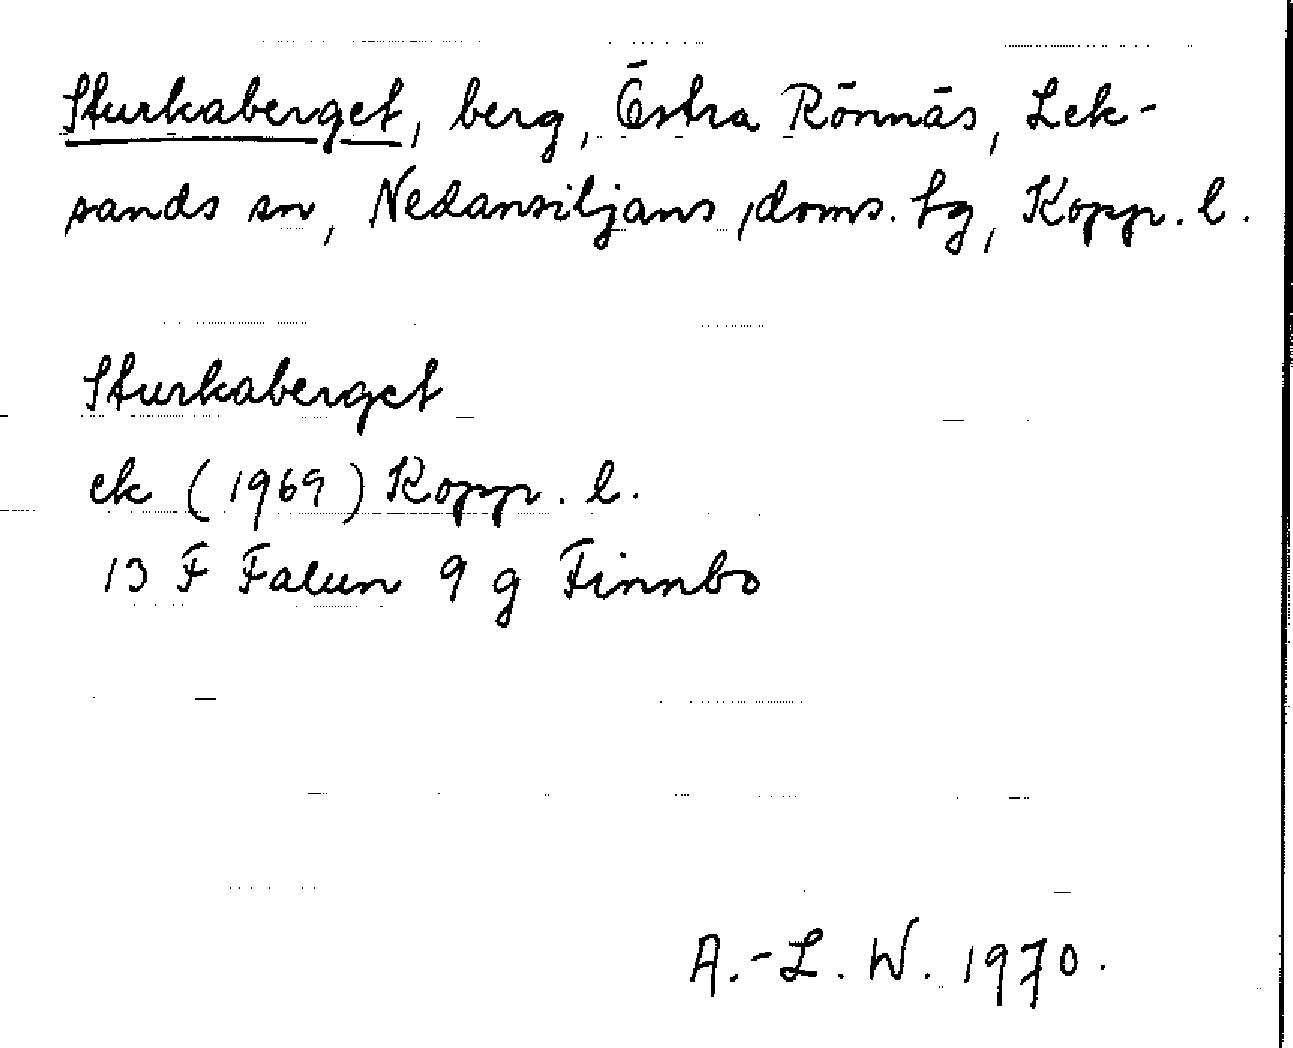 Sturkaberget, berg, Östra Rönnäs, Lek-
sands sn, Nedansiljans doms. hg, Kopp. l.
Sturkaberget
ek (1969) Kopp. l.
13 F Falun 9 g Finnbo
A.-L. W. 1970.